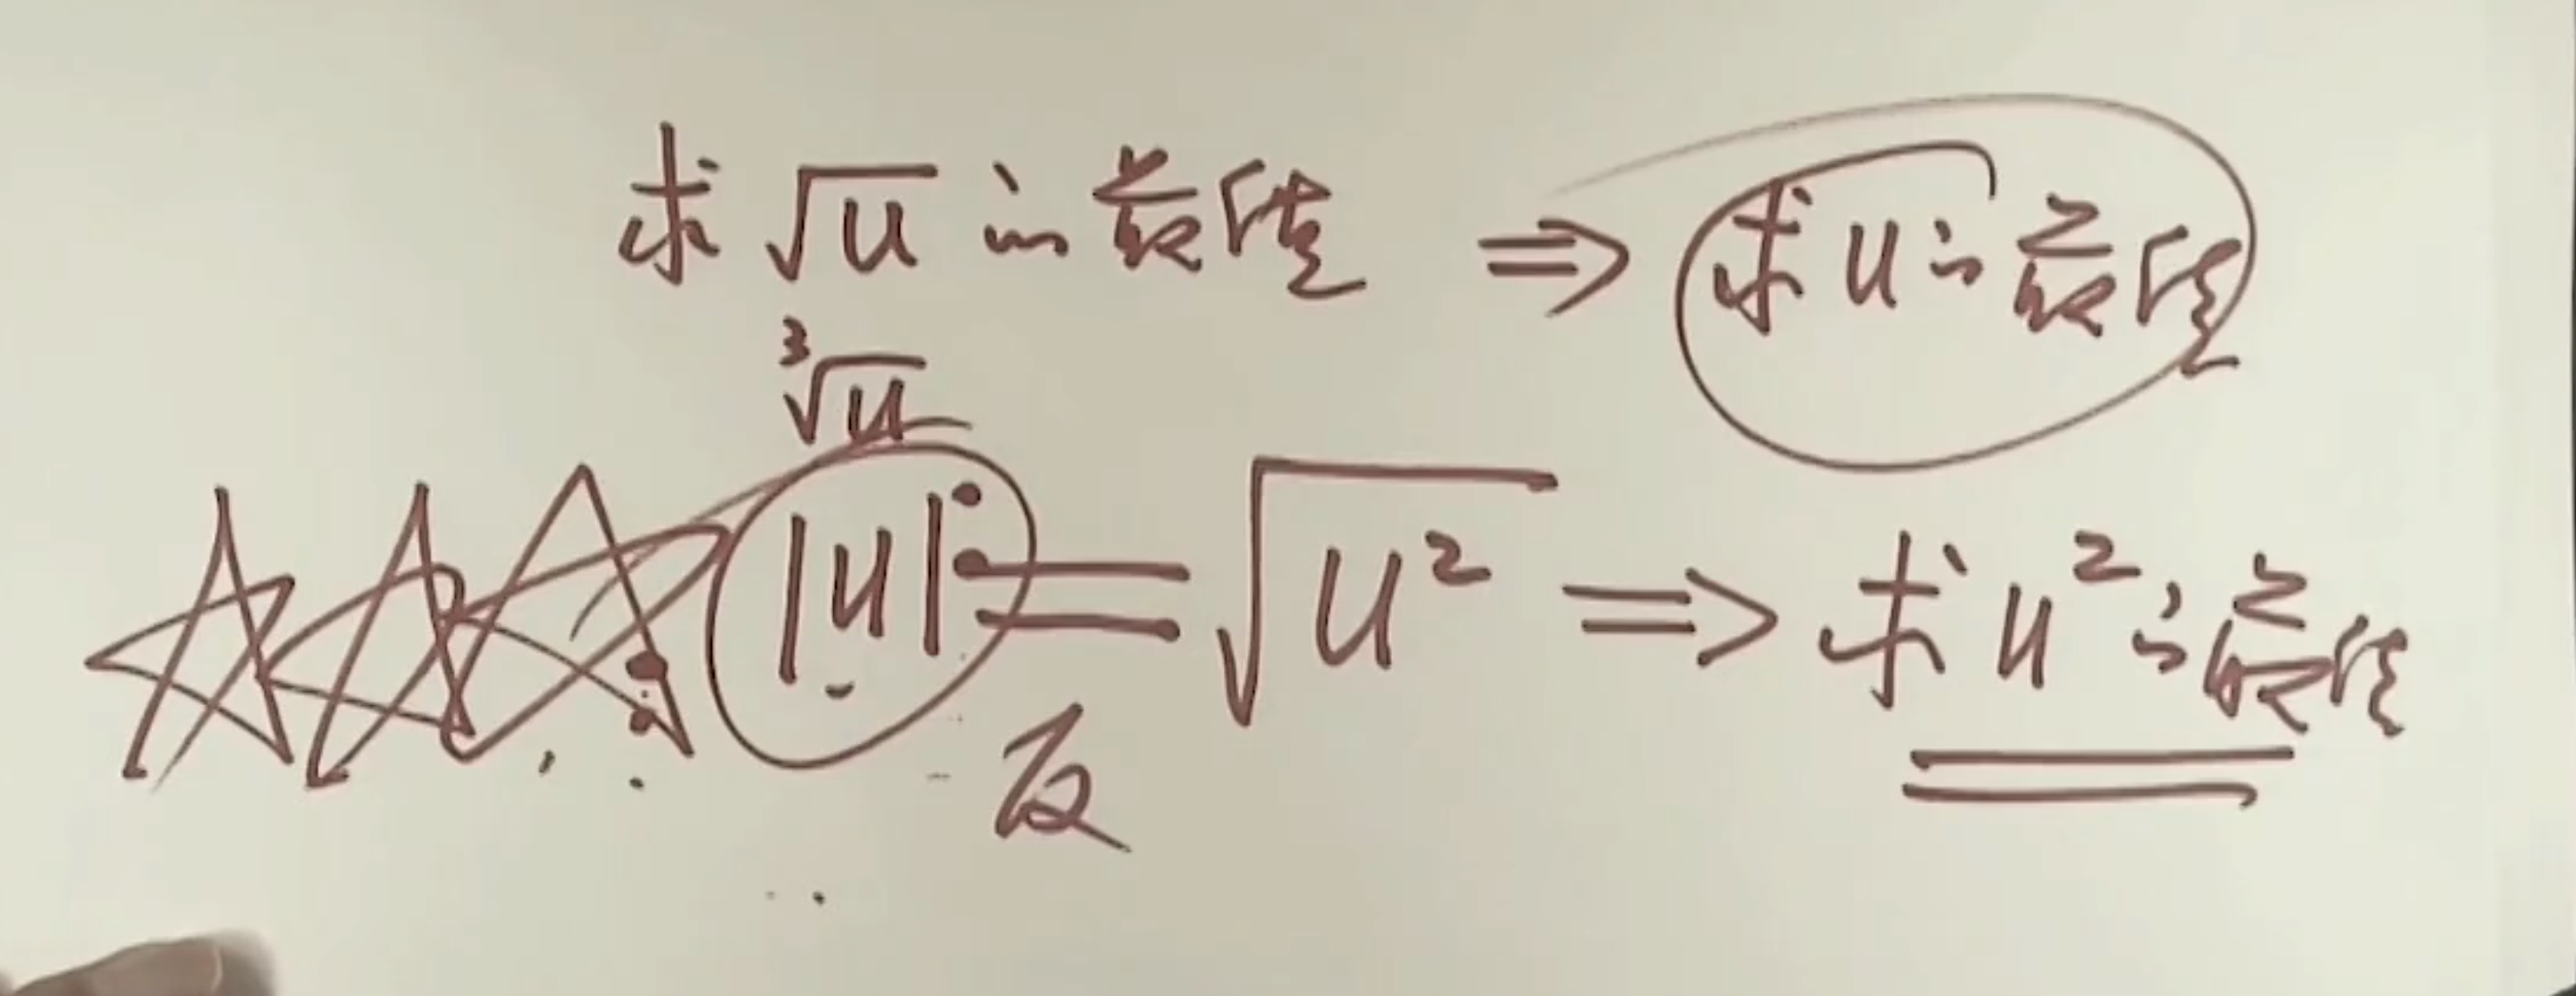 求 √u 的最值 ⇒ 求 u 的最值
∛u
|u| = √u² ⇒ 求 u² 的最值